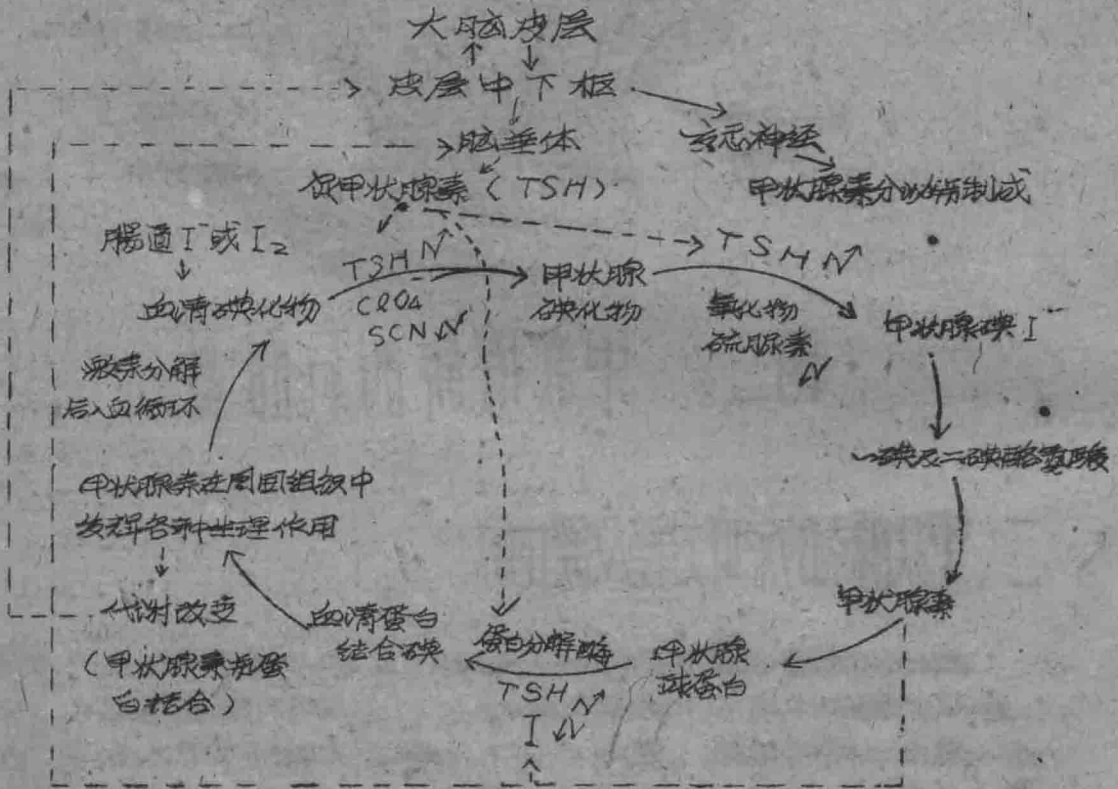 大脑皮层
皮层中下枢
脑垂体
交感神经
促甲状腺素(TSH)
甲状腺素分泌
肠道I⁻或I₂
TSH
TSH
血清碘化物
ClO4
SCN
甲状腺
碘化物
氧化物
硫脲素
甲状腺碘I⁻
激素分解
后入血循环
一碘及二碘酪氨酸
甲状腺素在周围组织中
发挥各种生理作用
代谢改变
(甲状腺素和蛋
白结合)
血清蛋白
结合碘
蛋白分解酶
TSH
I
甲状腺
球蛋白
甲状腺素